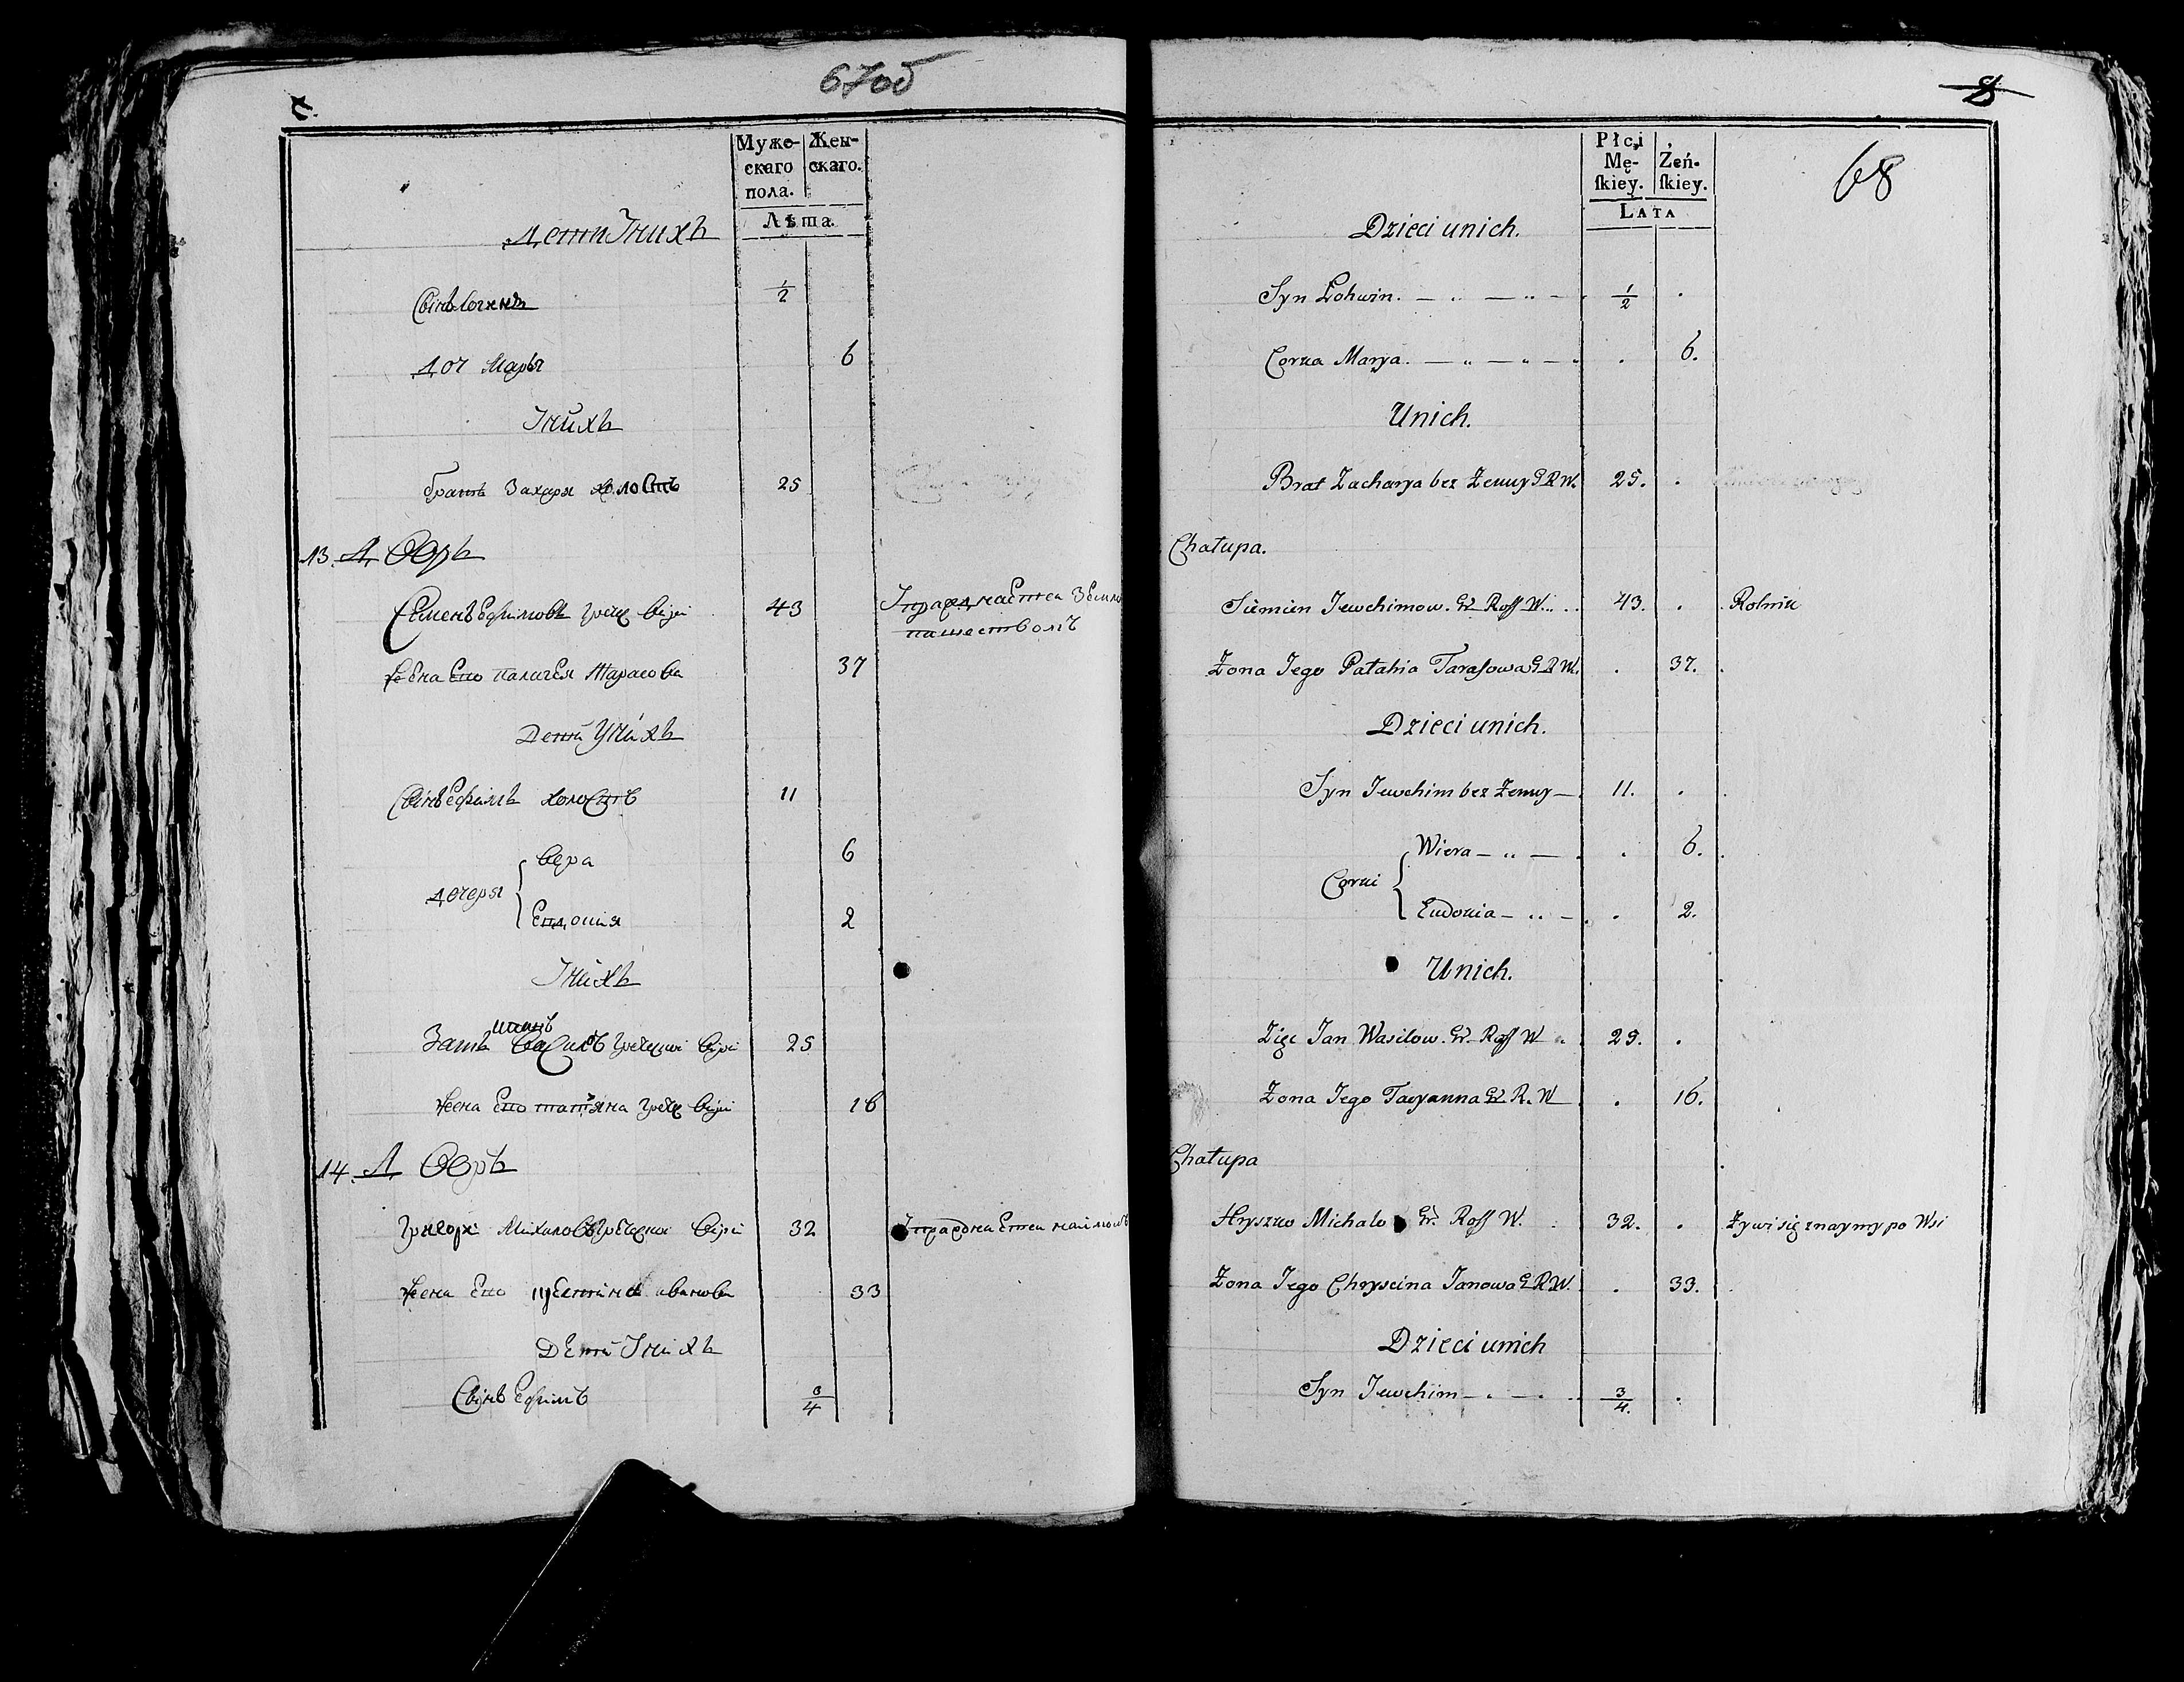 67об
Муже-
скаго
пола.
Жен-
скаго.
Лѣта.
Дети Iнихъ
Синъ Логинъ 1/2
Доч Маря 6
Iнихъ
братъ Захаря холостъ 25
13. Дворъ
Семенъ Ефимовъ греч вери 43
жена Его палагея тарасова 37
Дети Унихъ
Синъ Ефимъ холостъ 11
Дочеря
Вера 6
Евдокия 2
Iнихъ
иванъ
Зать Василъ Греческие вери 25
жена Его татьяна греч вери 16
14. Дворъ
Григори Михаловъ Гречески вери 32
жена Его иванова 33
Дети Iнихъ
Синъ Ефимъ 3/4
8
68
Płci
Mę-
ſkiey.
Żeń-
ſkiey.
LATA
Dzieci unich.
Syn Lohwin. 1/2 .
Corka Marya. . 6.
Unich.
Brat Zacharya bez Żenny G R W. 25. .
Chałupa.
Siemien Jewchimow. Gr. Roſſ W. 43. . Rolnik
Żona Jego Patahia Taraſowa G R W. . 37.
Dzieci unich.
Syn Jewchim bez Żenny 11. .
Corki
Wiera . 6.
Eudokia . 2.
Unich.
Zięć Jan Wasilow. Gr. Roſſ W 25. .
Żona Jego Tacyanna Gr R. W . 16.
Chałupa
Hryszko Michalo Gr. Roſſ W. 32. . Żywi się znaymy po Wsi
Żona Jego Chryscina Janowa G R W. . 33.
Dzieci unich
Syn Jewchim 3/4. .